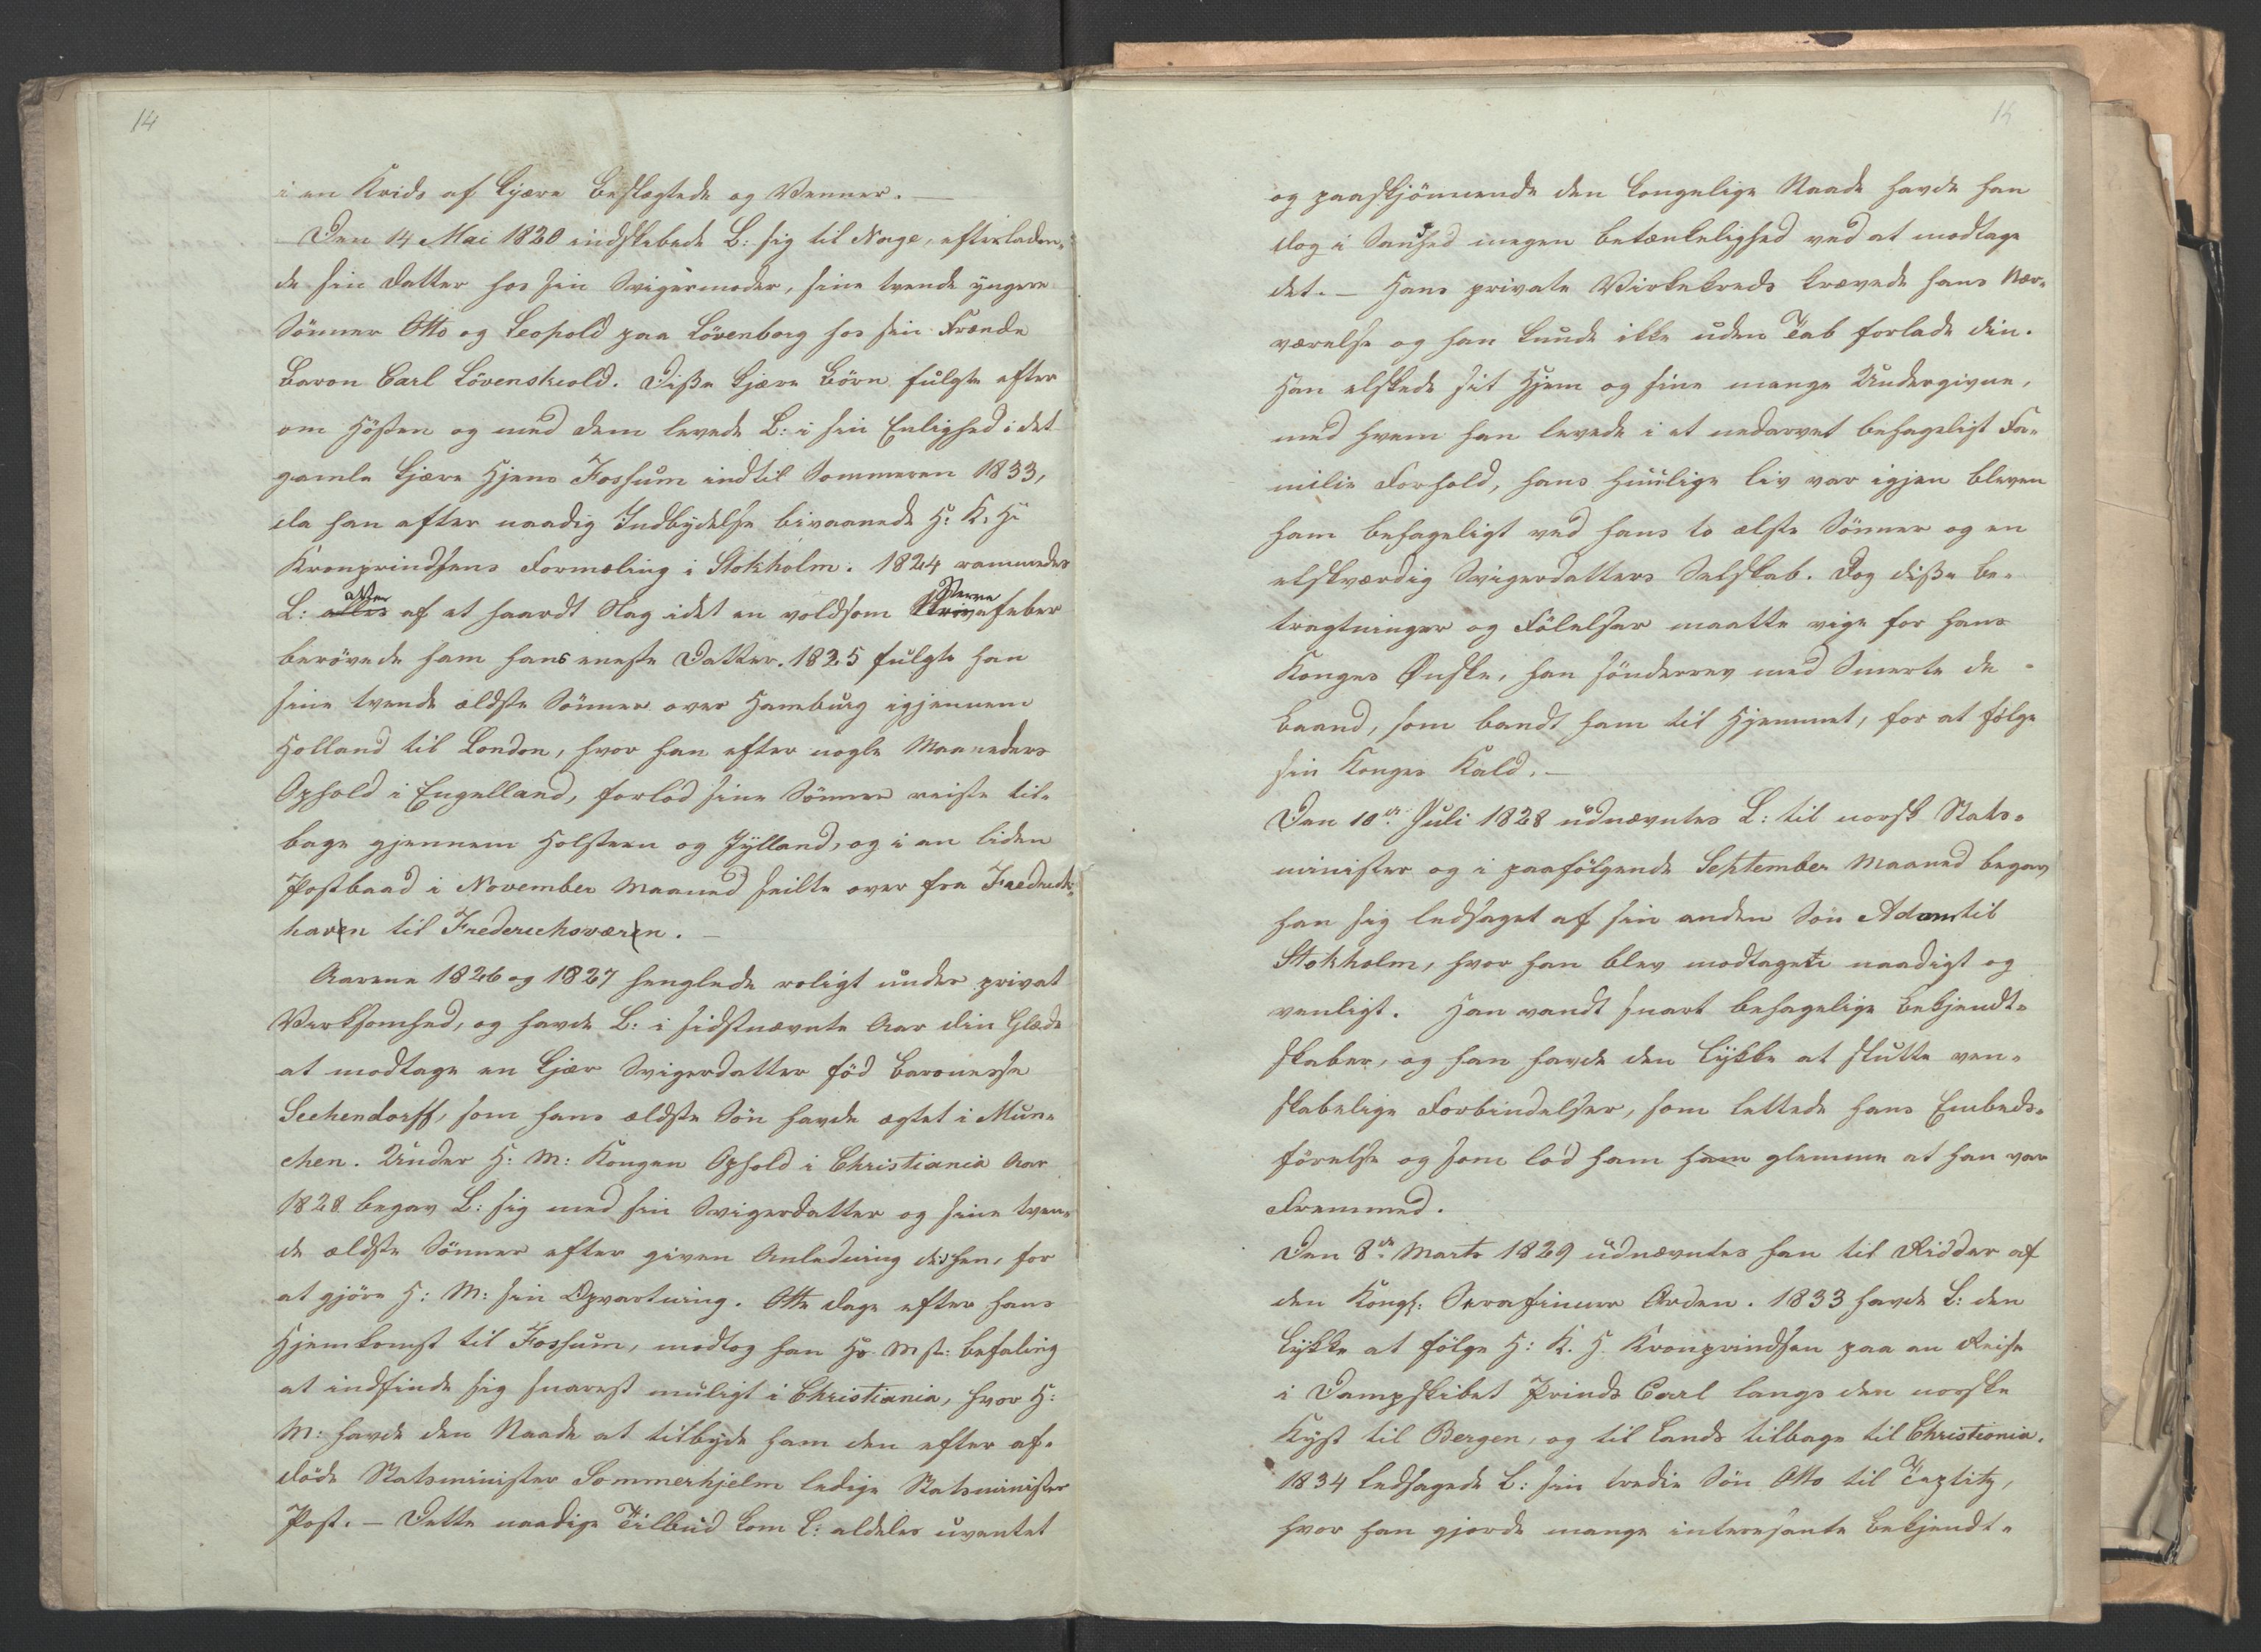 14
i en Kreds af kjære Beslægtede og Venner. —
Den 14 Mai 1820 indskibede L: sig til Norge, efterladen-
de sin Datter hos sin Svigermoder, sine tvende yngere
Sönner Otto og Leopold paa Lövenborg hos sin Frænde
Baron Carl Lövenskiold. Disse kjære Börn fulgte efter
om Hösten og med dem levede L: i sin Enlighed i det
gamle kjære Hjem Fossum indtil Sommeren 1833,
da han efter naadig Indbydelse bivaanede H: K: H:
Kronprindsens Formæling i Stokholm. 1824 rammedes
L: atter af et haardt Slag idet en voldsom Nervefeber
berövede ham hans eneste Datter. 1825 fulgte han
sine tvende ældste Sönner over Hamburg igjennem
Holland til London, hvor han efter nogle Maaneders
Ophold i Engelland, forlod sine Sönner reiste til-
bage gjennem Holsteen og Jylland, og i en liden
Postbaad i November Maaned seilte over fra Fredrichs-
havn til Frederichsværn. —
Aarene 1826 og 1827 henglede roligt under privat
Virksomhed, og havde L: i sidstnævnte Aar den Glæde
at modtage en kjær Svigerdatter föd Baronesse
Sechendorff, som hans ældste Sön havde ægtet i Mün-
chen. Under H: M: Kongen Ophold i Christiania Aar
1828 begav L: sig med sin Svigerdatter og sine tven-
de ældste Sönner efter given Anledning derhen, for
at gjöre H: M: sin Opvartning. Otte dage efter hans
Hjemkomst til Fossum, modtog han Hs Mst: Befaling
at indfinde sig snarest muligt i Christiania, hvor H:
M: havde den Naade at tilbyde ham den efter af-
döde Statsminister Sommerhjelm ledige Statsminister
Post. — Dette naadige Tilbud kom L: aldeles uventet
15
og paaskjönnende den kongelige Naade havde han
dog i Sandhed megen Betænkelighed ved at modtage
det. — Hans private Virkekreds krævede hans Nær-
værelse og han kunde ikke uden Tab forlade den.
Han elskede sit Hjem og sine mange Undergivne,
med hvem han levede i et nedarvet behageligt Fa-
milie Forhold, hans huuslige Liv var igjen bleven
ham behageligt ved hans to ælste Sönner og en
elskværdig Svigerdatters Selskab. Dog disse Be-
tragtninger og Fölelser maatte vige for hans
Konges Ønske, han sönderrev med Smerte de
Baand, som bandt ham til Hjemmet, for at fölge
sin Konges Kald. —
Den 10de Juli 1828 udnævntes L: til norsk Stats-
minister og i paafölgende September Maaned begav
han sig ledsaget af sin anden Sön Adam til
Stokholm, hvor han blev modtaget naadigt og
venligt. Han vandt snart behagelige Bekjendt-
skaber, og han havde den Lykke at slutte ven-
skabelige Forbindelser, som lettede hans Embeds-
förelse og som lod ham ham glemme at han var
Fremmed.
Den 8de Marts 1829 udnævntes han til Ridder af
den Kongl: Serafimer Orden. 1833 havde L: den
Lykke at fölge H: K. H. Kronprindsen paa en Reise
i Dampskibet Prinds Carl langs den norske
Kyst til Bergen, og til Lands tilbage til Christiania.
1834 ledsagede L: sin tredie Sön Otto til Teplitz,
hvor han gjorde mange interesante Bekjendt-